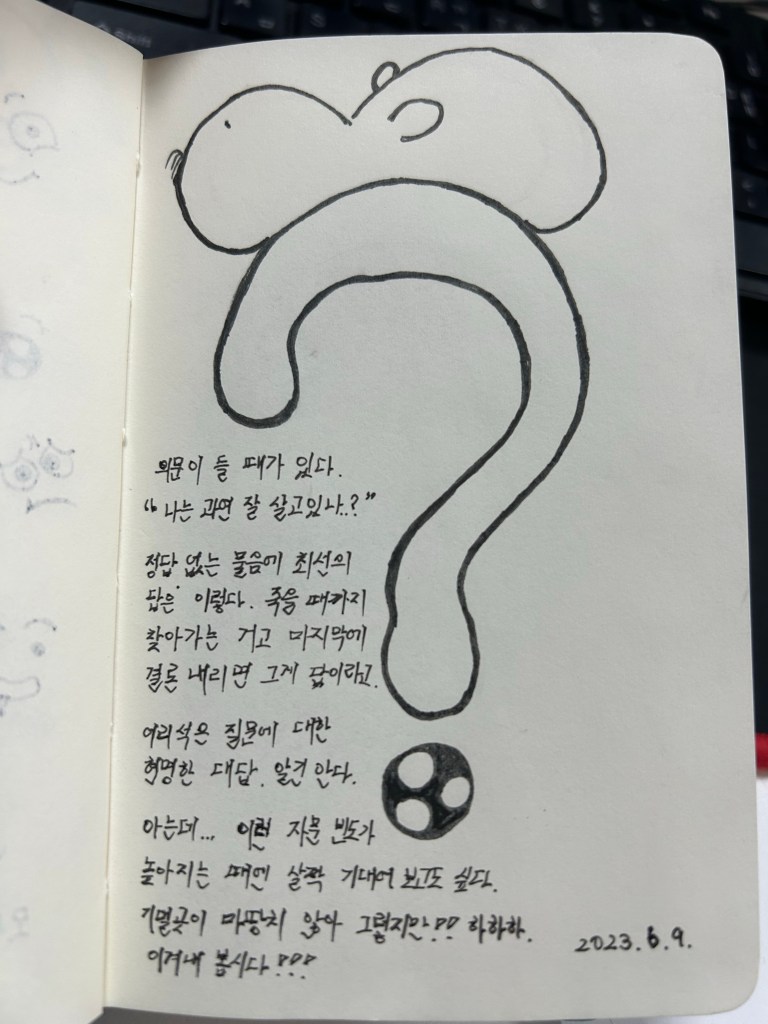 의문이 들 때가 있다.
"나는 과연 잘 살고있나..?"
정답 없는 물음에 최선의
답은 이렇다. 죽을 때까지
찾아가는 거고 마지막에
결론 내리면 그게 답이라고.
어리석은 질문에 대한
현명한 대답. 알건 안다.
아는데... 이런 자문 빈도가
높아지는 때엔 살짝 기대어 보고도 싶다.
기댈곳이 마땅치 않아 그렇지만!! 하하하.
이겨내 봅시다!!!
2023.6.9.
shift